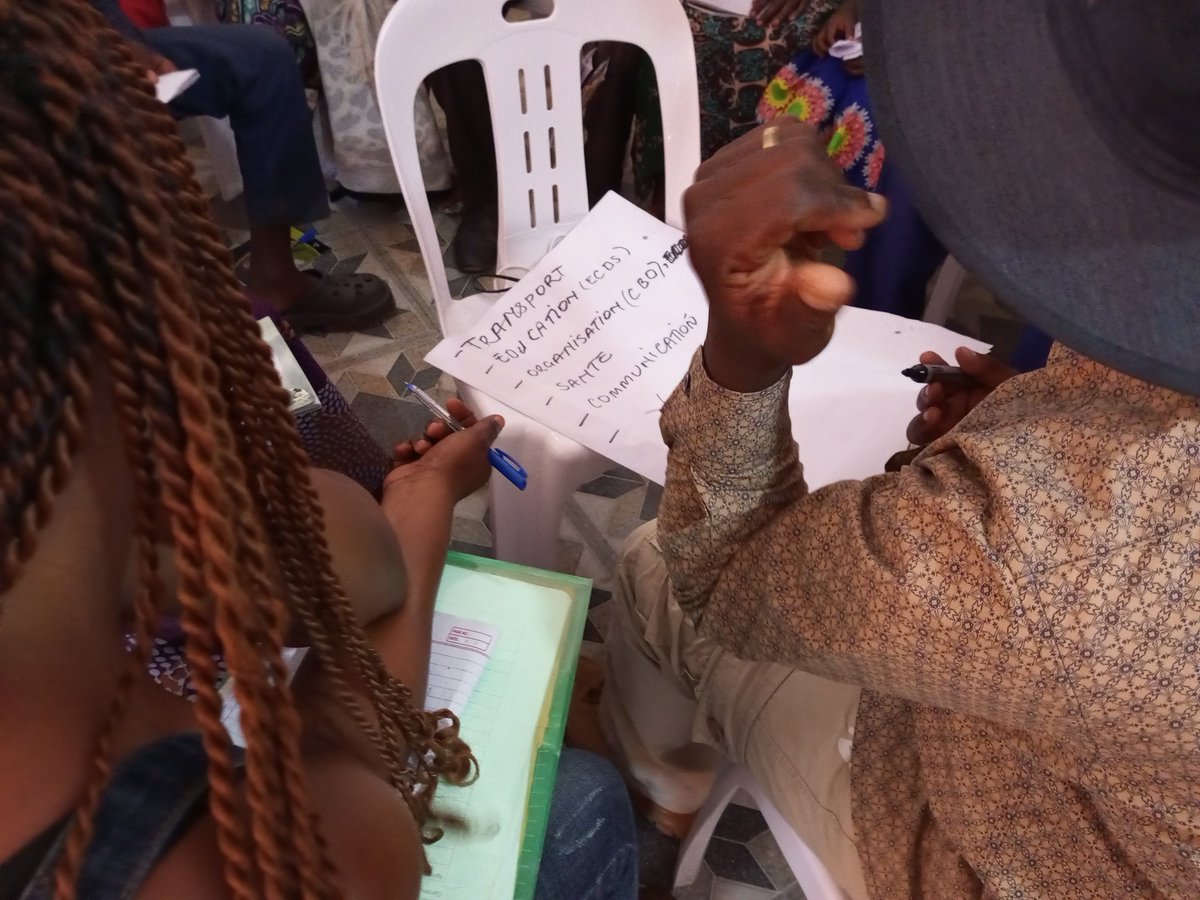 - TRANSPORT
- EDUCATION (ECDS)
- ORGANISATION (CBO),
- SANTE
- COMMUNICATION
-
PAGE NO.
DATE: